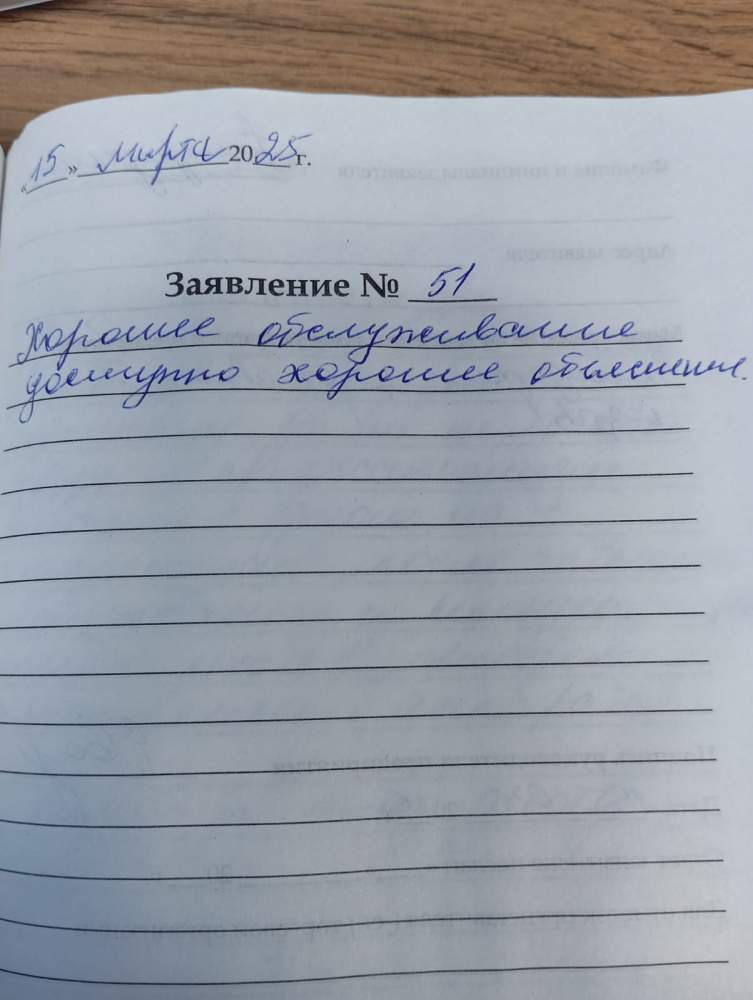 «15» марта 2025 г.
Заявление № 51
Хорошее обслуживание
доступно хорошее объяснение.